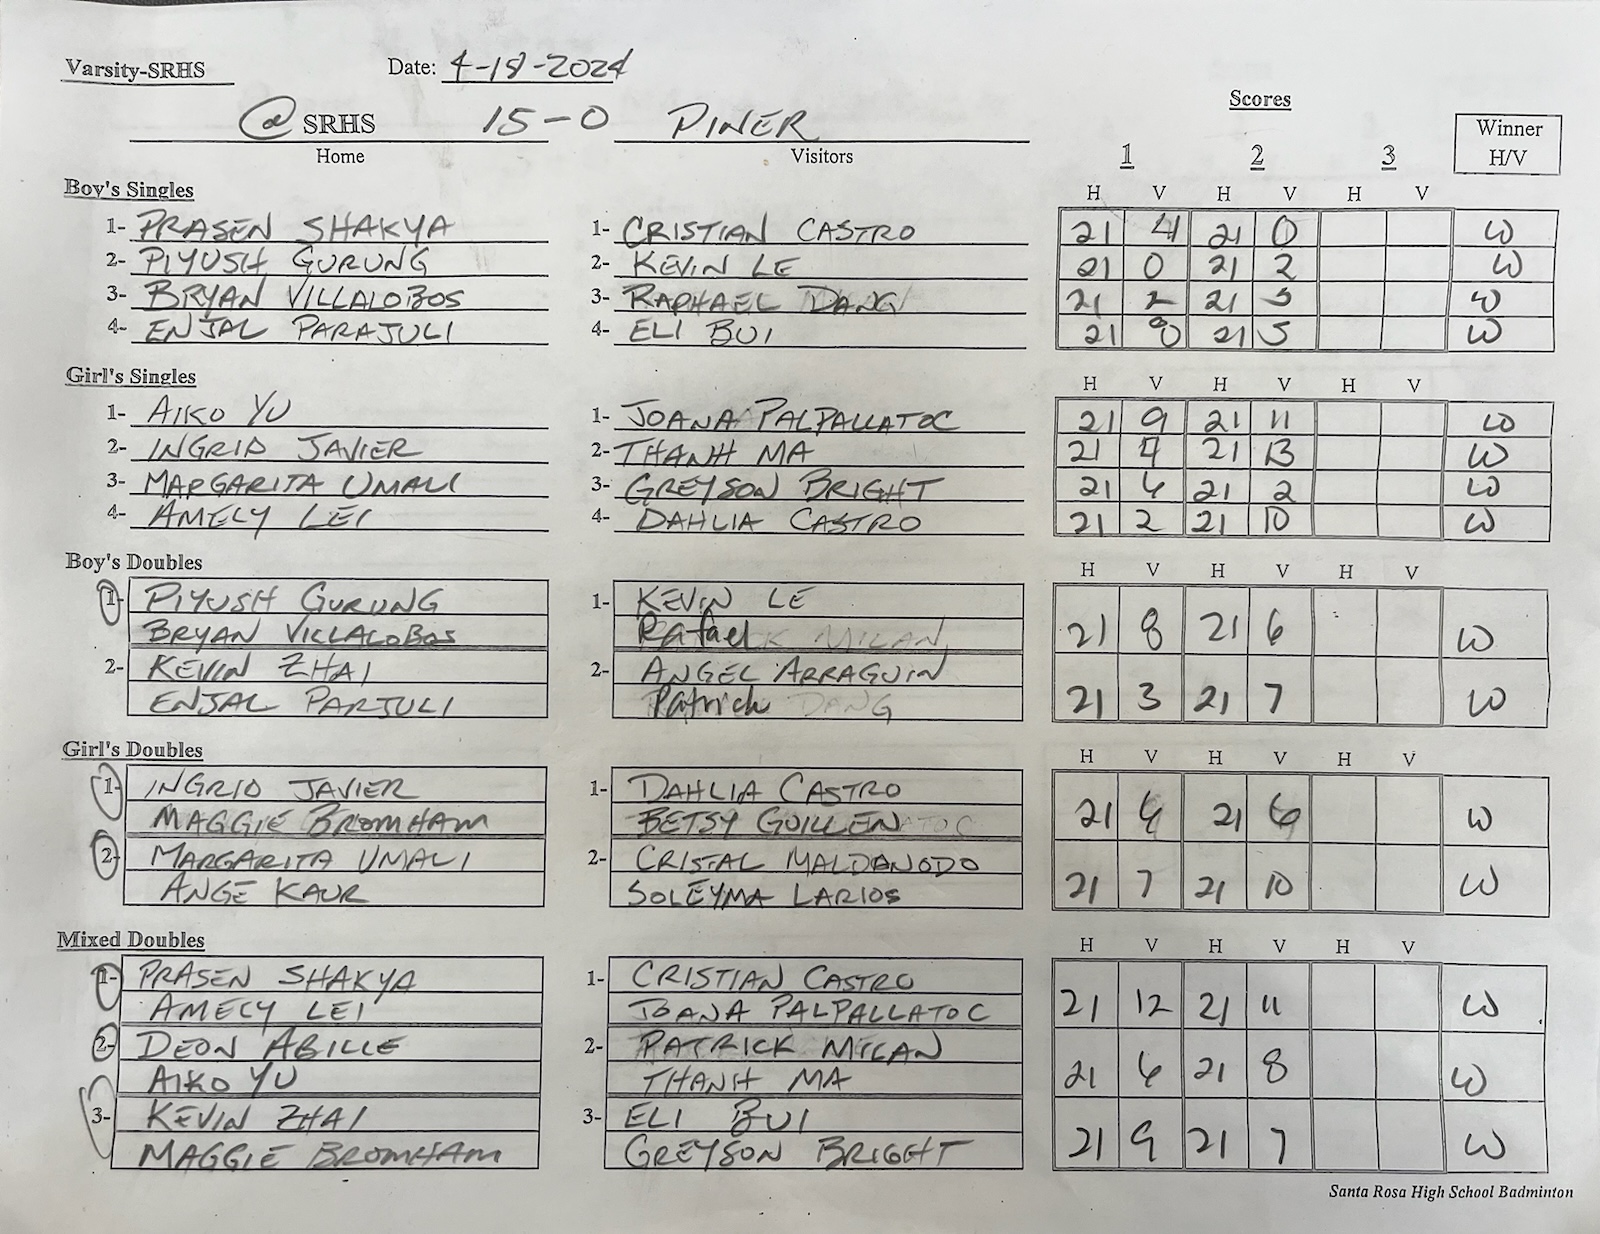 Varsity-SRHS Date: 4-18-2024
@ SRHS 15-0 PINER Scores
Home Visitors 1 2 3 Winner H/V
Boy's Singles H V H V H V
1- PRASEN SHAKYA 1- CRISTIAN CASTRO 21 4 21 0 W
2- PIYUSH GURUNG 2- KEVIN LE 21 0 21 2 W
3- BRYAN VILLALOBOS 3- RAPHAEL DANG 21 2 21 5 W
4- ENJAL PARAJULI 4- ELI BUI 21 21 5 W
Girl's Singles H V H V H V
1- AIKO YU 1- JOANA PALPALLATOC 21 9 21 11 W
2- INGRID JAVIER 2- THANH MA 21 21 13 W
3- MARGARITA UMALI 3- GREYSON BRIGHT 21 6 21 2 W
4- AMELY LEI 4- DAHLIA CASTRO 21 2 21 10 W
Boy's Doubles H V H V H V
1- PIYUSH GURUNG 1- KEVIN LE
BRYAN VILLALOBOS Rafael MILAN 21 8 21 6 W
2- KEVIN ZHAI 2- ANGEL ARRAGUIN
ENJAL PARJULI Patrick DANG 21 3 21 7 W
Girl's Doubles H V H V H V
1- INGRID JAVIER 1- DAHLIA CASTRO
MAGGIE BROMHAM BETSY GUILLEN 21 6 21 6 W
2- MARGARITA UMALI 2- CRISTAL MALDANODO
ANGE KAUR SOLEYMA LARIOS 21 7 21 10 W
Mixed Doubles H V H V H V
1- PRASEN SHAKYA 1- CRISTIAN CASTRO
AMELY LEI JOANA PALPALLATOC 21 12 21 11 W
2- DEON ABILLE 2- PATRICK MILAN
AIKO YU THANH MA 21 6 21 8 W
3- KEVIN ZHAI 3- ELI BUI
MAGGIE BROMHAM GREYSON BRIGHT 21 9 21 7 W
Santa Rosa High School Badminton